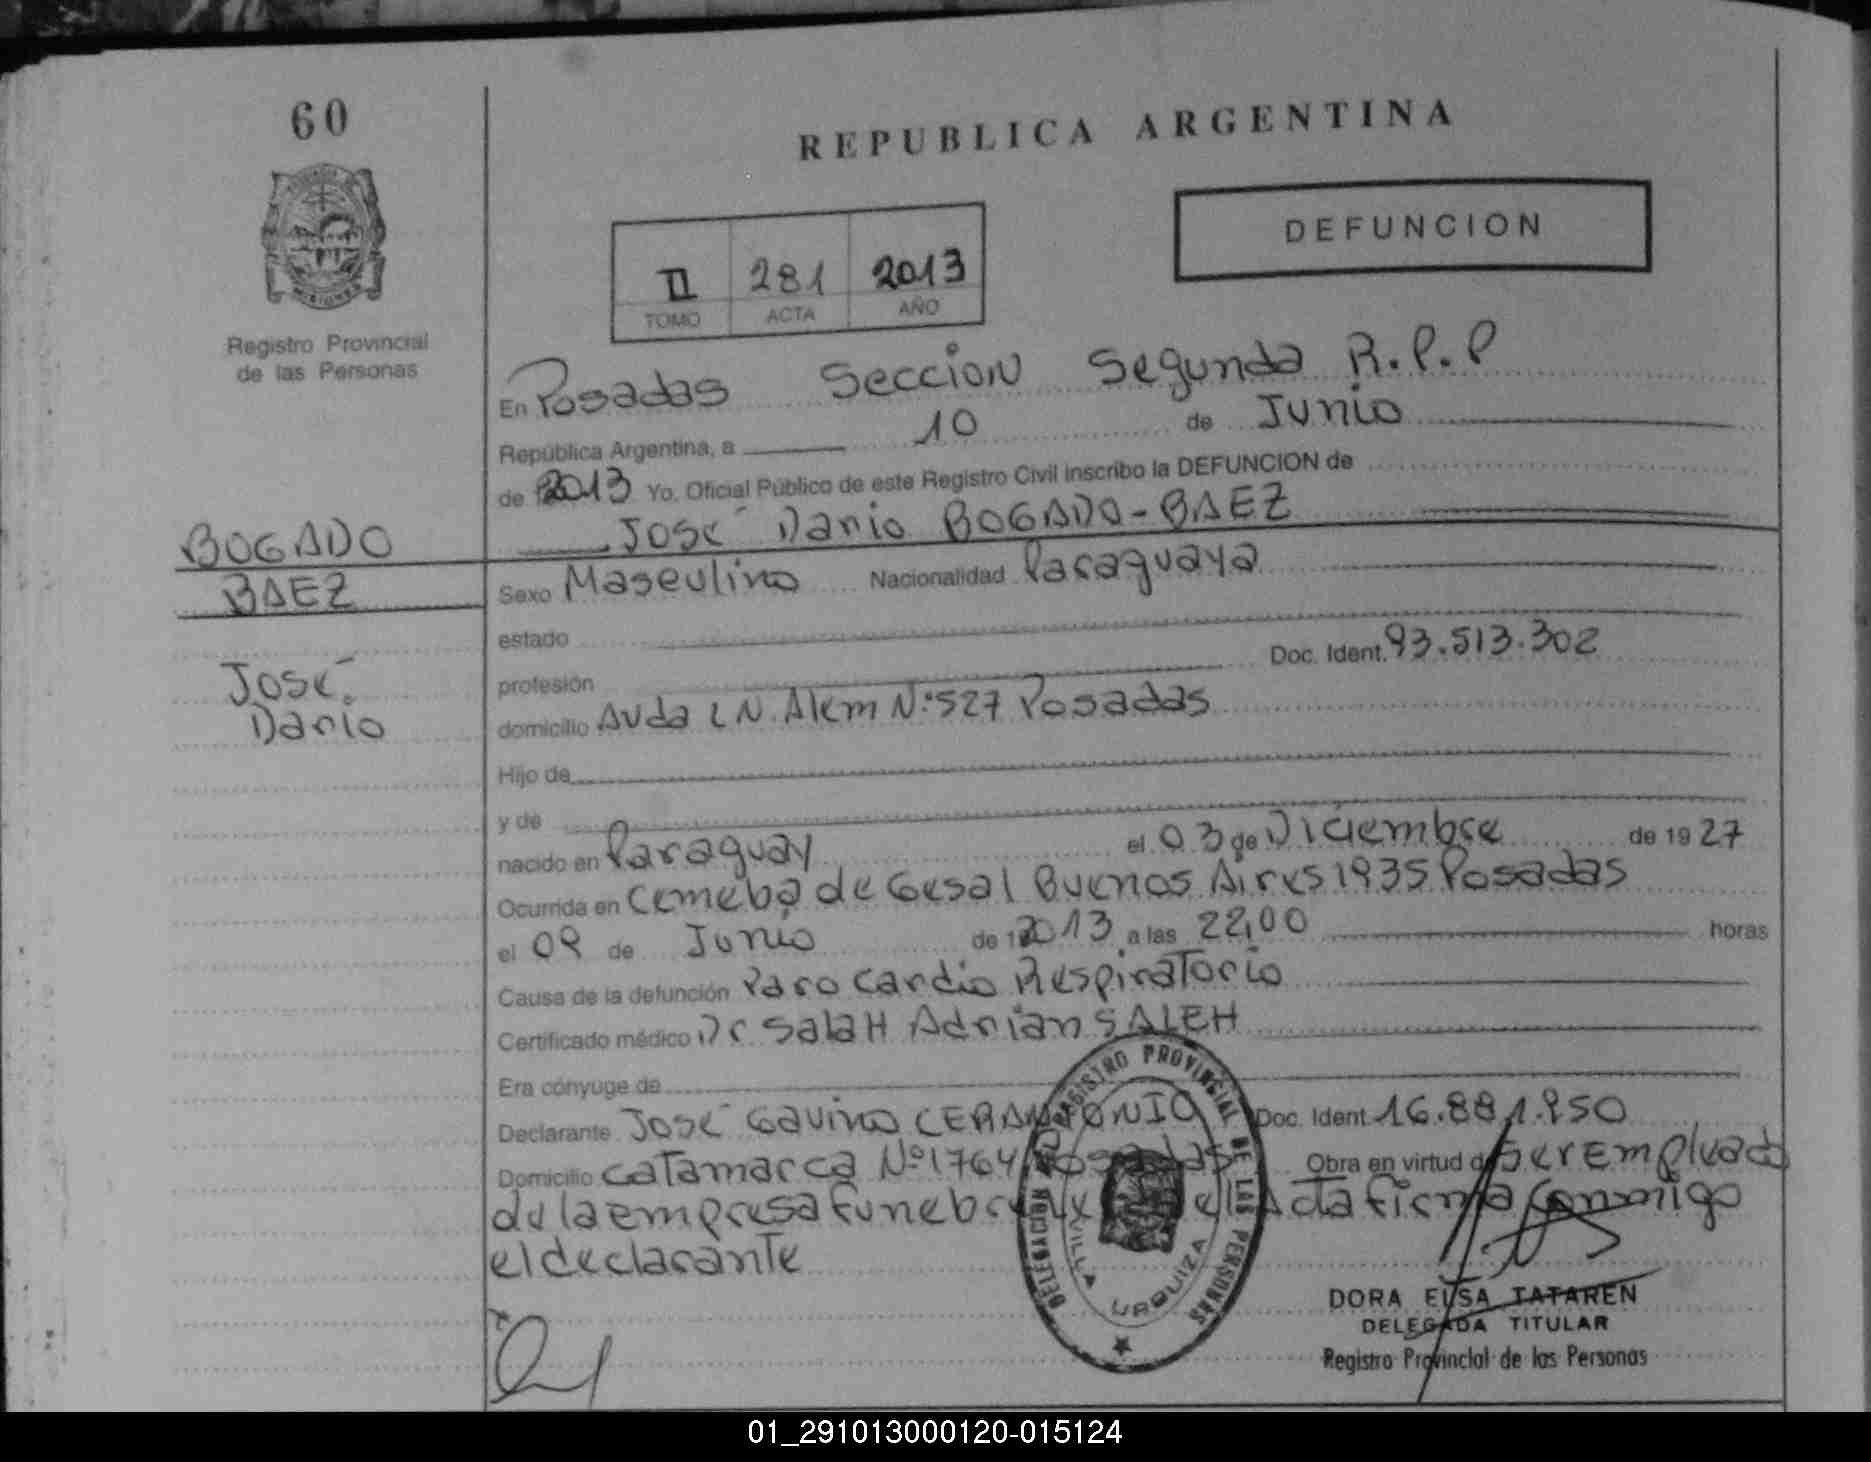 60
REPUBLICA ARGENTINA
DEFUNCION
II 281 2013
TOMO ACTA AÑO
Registro Provincial
de las Personas
En Posadas Seccion Segunda R.P.P
República Argentina, a 10 de Junio
de 2013 Yo, Oficial Público de este Registro Civil inscribo la DEFUNCION de
José Dario BOGADO-BAEZ
BOGADO
BAEZ
José
Dario
Sexo Masculino Nacionalidad Paraguaya
estado
profesión Doc. Ident. 93.513.302
domicilio Avda L N. Alem Nº 527 Posadas
Hijo de
y de
nacido en Paraguay el 03 de Diciembre de 1927
Ocurrida en Cemeba de Gesal Buenos Aires 1935 Posadas
el 09 de Junio de 2013 a las 22,00 horas
Causa de la defunción Paro Cardio Respiratorio
Certificado médico Dr Salah Adrian SALEH
Era cónyuge de
Declarante José Gavino Doc. Ident 16.881.950
Domicilio Catamarca Nº 1764 Posadas Obra en virtud de ser Empleado
de la empresa funebre el Acta firma Conmigo
el declarante
DELEGACION REGISTRO PROVINCIAL DE LAS PERSONAS
VILLA URQUIZA
DORA ELSA TATAREN
DELEGADA TITULAR
Registro Provincial de las Personas
01_291013000120-015124